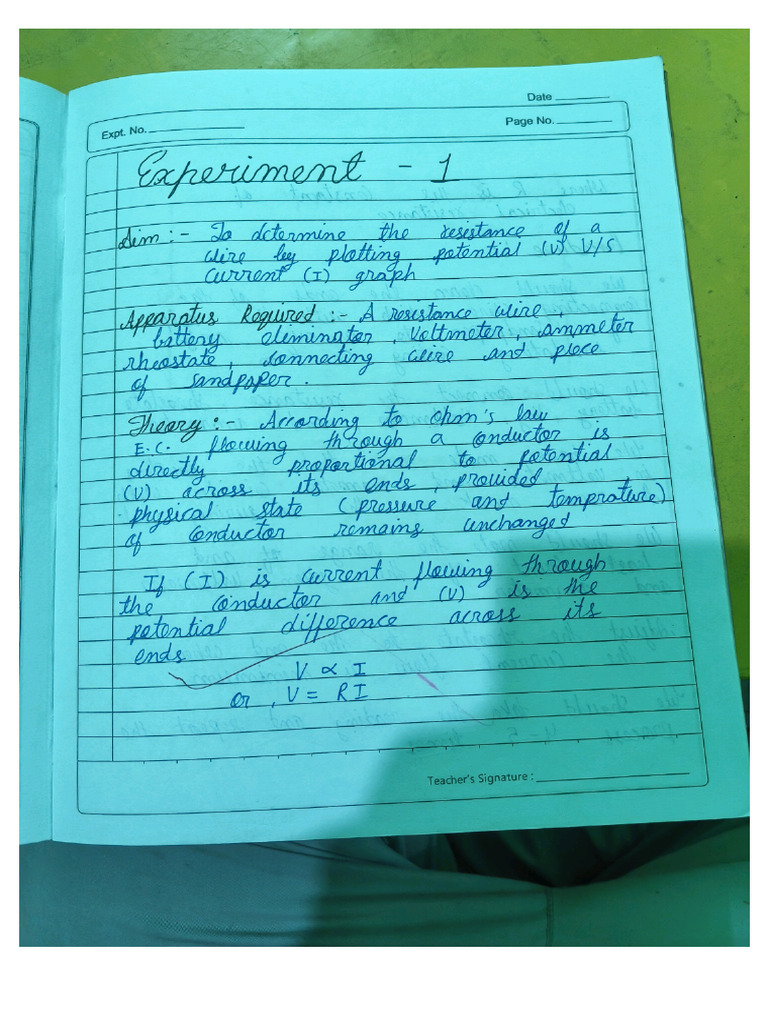 Date
Expt. No.
Page No.
Experiment - 1
Aim :- To determine the resistance of a
wire by plotting potential (V) V/S
current (I) graph
Apparatus Required :- A resistance wire,
battery eliminator, Voltmeter, ammeter
rheostate, connecting wire and piece
of sandpaper.
Theory :- According to Ohm's law
E.C. flowing through a conductor is
directly proportional to potential
(V) across its ends, provided
physical state (pressure and temprature)
of conductor remains unchanged
If (I) is current flowing through
the conductor and (V) is the
potential difference across its
ends
V ∝ I
or, V = RI
Teacher's Signature :